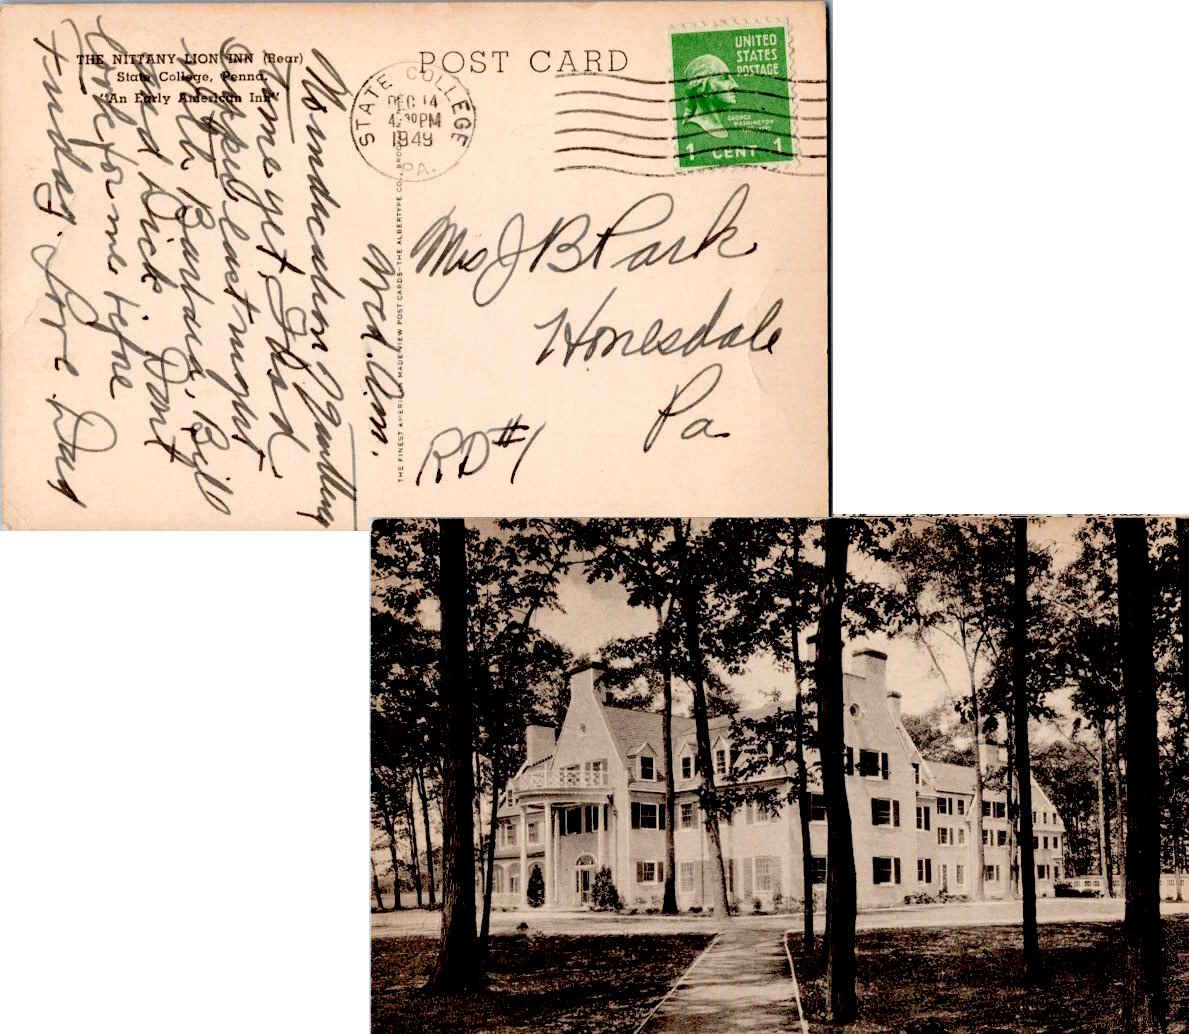 THE NITTANY LION INN (Rear)
State College, Penna.
"An Early American Inn"
POST CARD
STATE COLLEGE
DEC 14
4:30 PM
1949
PA.
UNITED
STATES
POSTAGE
GEORGE
WASHINGTON
1 CENT 1
THE FINEST AMERICAN MADE VIEW POST CARDS—THE ALBERTYPE CO., BROO
Wed. A.m.
No indication
Home yet. I had
supper last night
with Barbara, Bill
and Dick. Don't
look for me before
Friday. Love
Mrs J B Park
Honesdale
Pa
RD #1